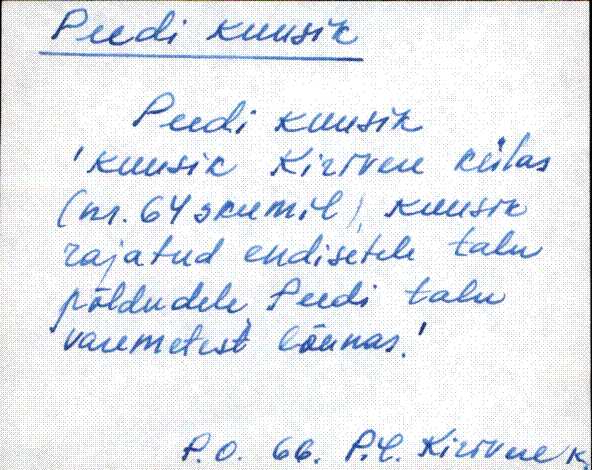 Peedi kuusik
Peedi kuusik
'kuusik Kirivere külas
(nr. 64 skeemil), kuusik
rajatud endisetele talu
põldudele, Peedi talu
varemetest lõunas.'
P.O. 66. P.Ü. Kirivere k.